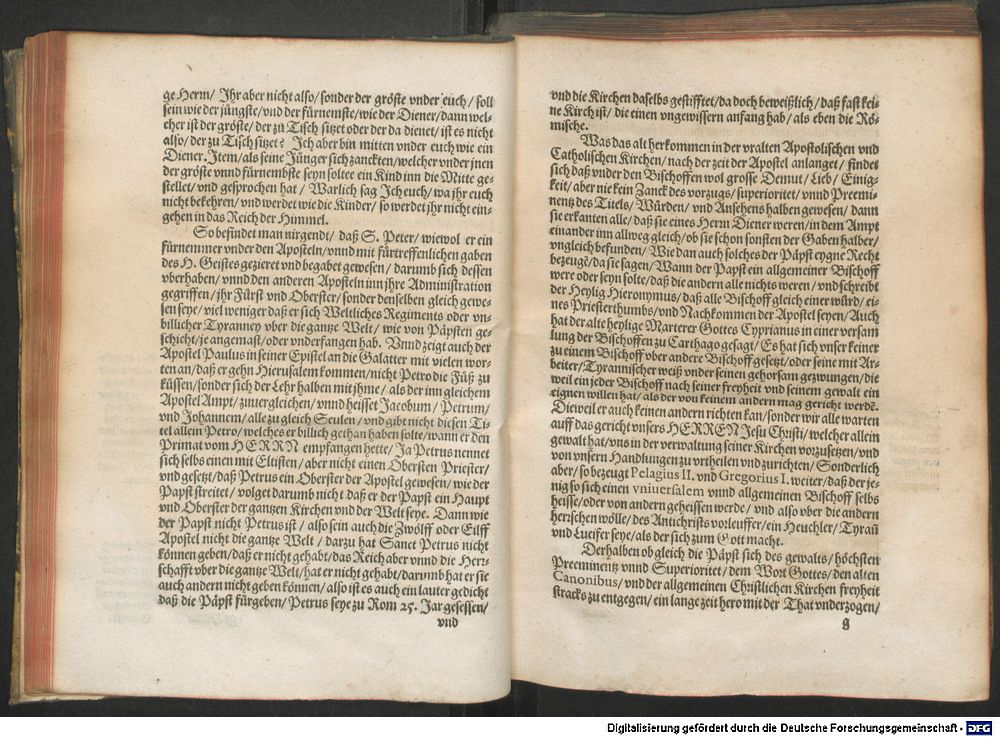 ge Herrn/ Ihr aber nicht also/ sonder der gröste vnder euch/ soll
sein wie der jüngste/ vnd der fürnemste/ wie der Diener/ dann wel-
cher ist der gröste/ der zu Tisch sitzet oder der da dienet/ ist es nicht
also/ der zu Tisch sitzet? Ich aber bin mitten vnder euch wie ein
Diener. Item/ als seine Jünger sich zanckten/ welcher vnder jnen
der gröste vnnd fürnembste seyn soltee ein Kind inn die Mitte ge-
stellet/ vnd gesprochen hat/ Warlich sag Ich euch/ wa jhr euch
nicht bekehren/ vnd werdet wie die Kinder/ so werdet jhr nicht ein-
gehen in das Reich der Himmel.
So befindet man nirgendt/ daß S. Peter/ wiewol er ein
fürnemmer vnder den Aposteln/ vnnd mit fürtreffenlichen gaben
des H. Geistes gezieret vnd begabet gewesen/ darumb sich dessen
vberhaben/ vnnd den anderen Aposteln inn jhre Administration
gegriffen/ jhr Fürst vnd Oberster/ sonder denselben gleich gewe-
sen seye/ viel weniger daß er sich Weltliches Regiments oder vn-
billicher Tyranney vber die gantze Welt/ wie von Päpsten ge-
schicht/ je angemast/ oder vnderfangen hab. Vnnd zeigt auch der
Apostel Paulus in seiner Epistel an die Galatter mit vielen wor-
ten an/ daß er gehn Hierusalem kommen/ nicht Petro die Füß zu
küssen/ sonder sich der Lehr halben mit jhme/ als der inn gleichem
Apostel Ampt/ zuuergleichen/ vnnd heisset Jacobum/ Petrum/
vnd Johannem/ alle zu gleich Seulen/ vnd gibt nicht diesen Ti-
tel allein Petro/ welches er billich gethan haben solte/ wann er den
Primat vom HERRN empfangen hette/ Ja Petrus nennet
sich selbs einen mit Eltisten/ aber nicht einen Obersten Priester/
vnd gesetzt/ daß Petrus ein Oberster der Apostel gewesen/ wie der
Papst streitet/ volget darumb nicht daß er der Papst ein Haupt
vnd Oberster der gantzen Kirchen vnd der Welt seye. Dann wie
der Papst nicht Petrus ist/ also sein auch die Zwölff oder Eilff
Apostel nicht die gantze Welt/ darzu hat Sanct Petrus nicht
können geben/ daß er nicht gehabt/ das Reich aber vnnd die Herr-
schafft vber die gantze Welt/ hat er nicht gehabt/ darumb hat er sie
auch andern nicht geben können/ also ist es auch ein lauter gedicht
daß die Päpst fürgeben/ Petrus seye zu Rom 25. Jar gesessen/
vnd
vnd die Kirchen daselbs gestifftet/ da doch beweißlich/ daß fast kei-
ne Kirch ist/ die einen vngewissern anfang hab/ als eben die Rö-
mische.
Was das alt herkommen in der vralten Apostolischen vnd
Catholischen Kirchen/ nach der zeit der Apostel anlanget/ findet
sich daß vnder den Bischoffen wol grosse Demut/ Lieb/ Einig-
keit/ aber nie kein Zanck des vorzugs/ superioritet/ vnnd Preemi-
nentz des Titels/ Würden/ vnd Ansehens halben gewesen/ dann
sie erkanten alle/ daß sie eines Herrn Diener weren/ in dem Ampt
einander inn allweg gleich/ ob sie schon sonsten der Gaben halber/
vngleich befunden/ Wie dan auch solches der Päpst eygne Recht
bezeugē/ da sie sagen/ Wann der Papst ein allgemeiner Bischoff
were oder seyn solte/ daß die andern alle nichts weren/ vnd schreibt
der Heylig Hieronymus/ daß alle Bischoff gleich einer würd/ ei-
nes Priesterthumbs/ vnd Nachkommen der Apostel seyen/ Auch
hat der alte heylige Marterer Gottes Cyprianus in einer versam
lung der Bischoffen zu Carthago gesagt/ Es hat sich vnser keiner
zu einem Bischoff vber andere Bischoff gesetzt/ oder seine mit Ar-
beiter/ Tyrannischer weiß vnder seinen gehorsam gezwungen/ die
weil ein jeder Bischoff nach seiner freyheit vnd seinem gewalt ein
eignen willen hat/ als der von keinem andern mag gericht werdē.
Dieweil er auch keinen andern richten kan/ sonder wir alle warten
auff das gericht vnsers HERREN Jesu Christi/ welcher allein
gewalt hat/ vns in der verwaltung seiner Kirchen vorzusetzen/ vnd
von vnsern Handlungen zu vrtheilen vnd zurichten/ Sonderlich
aber/ so bezeugt Pelagius II. vnd Gregorius I. weiter/ daß der je-
nig so sich einen vniuersalem vnnd allgemeinen Bischoff selbs
heisse/ oder von andern geheissen werde/ vnd also vber die andern
herrschen wölle/ des Antichrists vorleuffer/ ein Heuchler/ Tyrañ
vnd Lucifer seye/ als der sich zum Gott macht.
Derhalben ob gleich die Päpst sich des gewalts/ höchsten
Preeminentz vnnd Superioritet/ dem Wort Gottes/ den alten
Canonibus/ vnd der allgemeinen Christlichen Kirchen freyheit
stracks zu entgegen/ ein lange zeit hero mit der That vnderzogen/
g
Digitalisierung gefördert durch die Deutsche Forschungsgemeinschaft - DFG